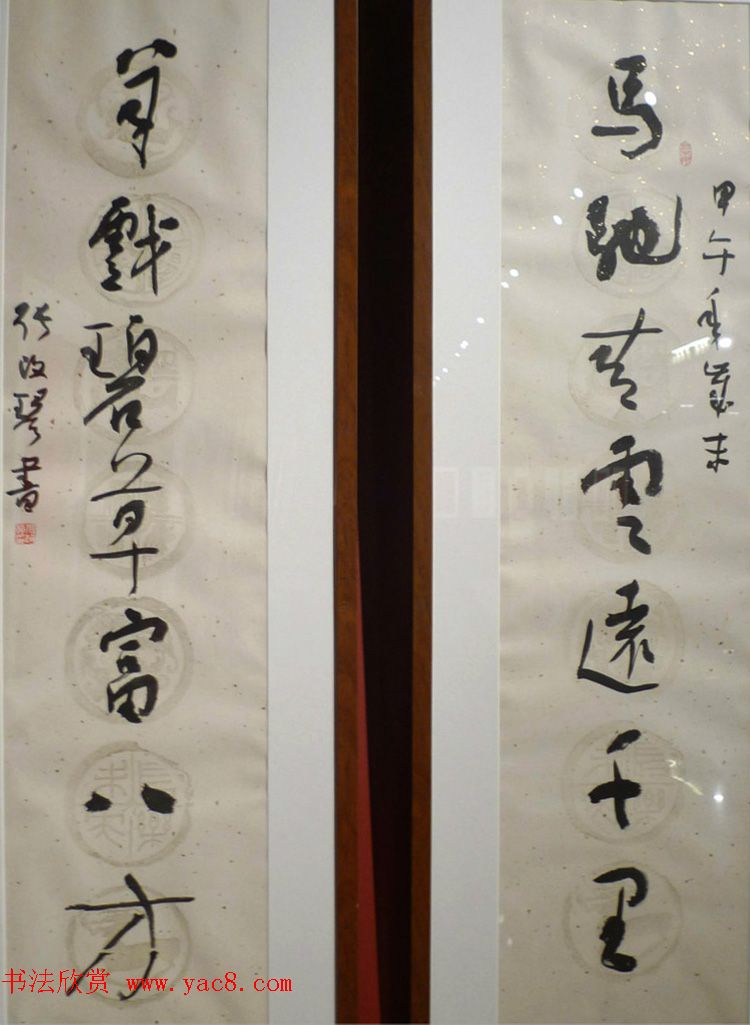 馬馳青雲遠千里
甲午年歲末
羊戲碧草富八方
張改琴書
书法欣赏 www.yac8.com